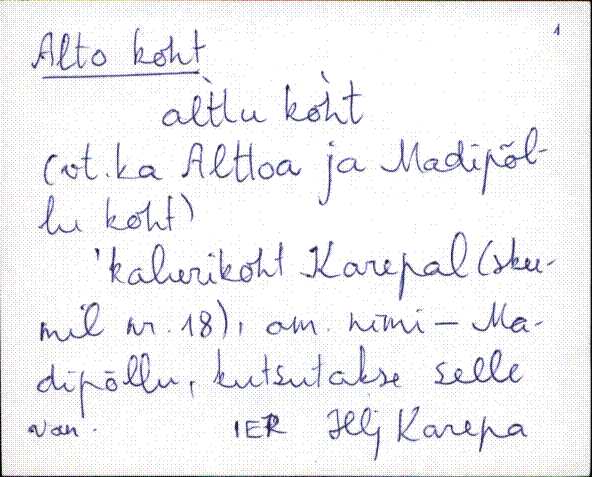 1
Alto koht
al̀tlu kòht
(vt. ka Alttoa ja Madipõl-
lu koht)
'kalurikoht Karepal (sku-
mil nr. 18), am. nimi – Ma-
dipõllu, kutsutakse selle
van. IER Hlj Karepa